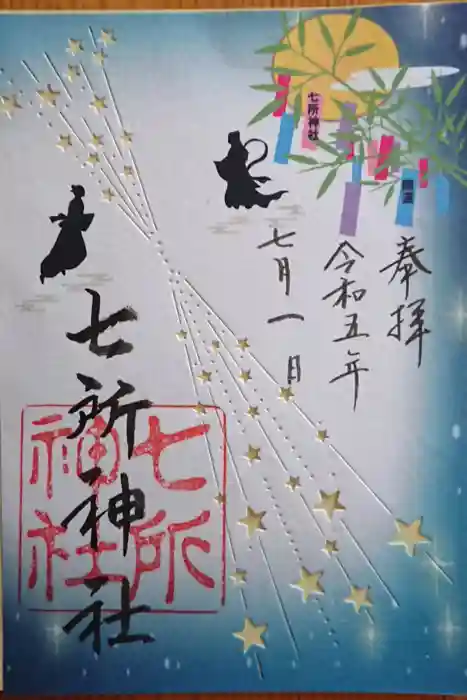 奉拝
令和五年
七月一日
七所神社
七所
神社
七所神社